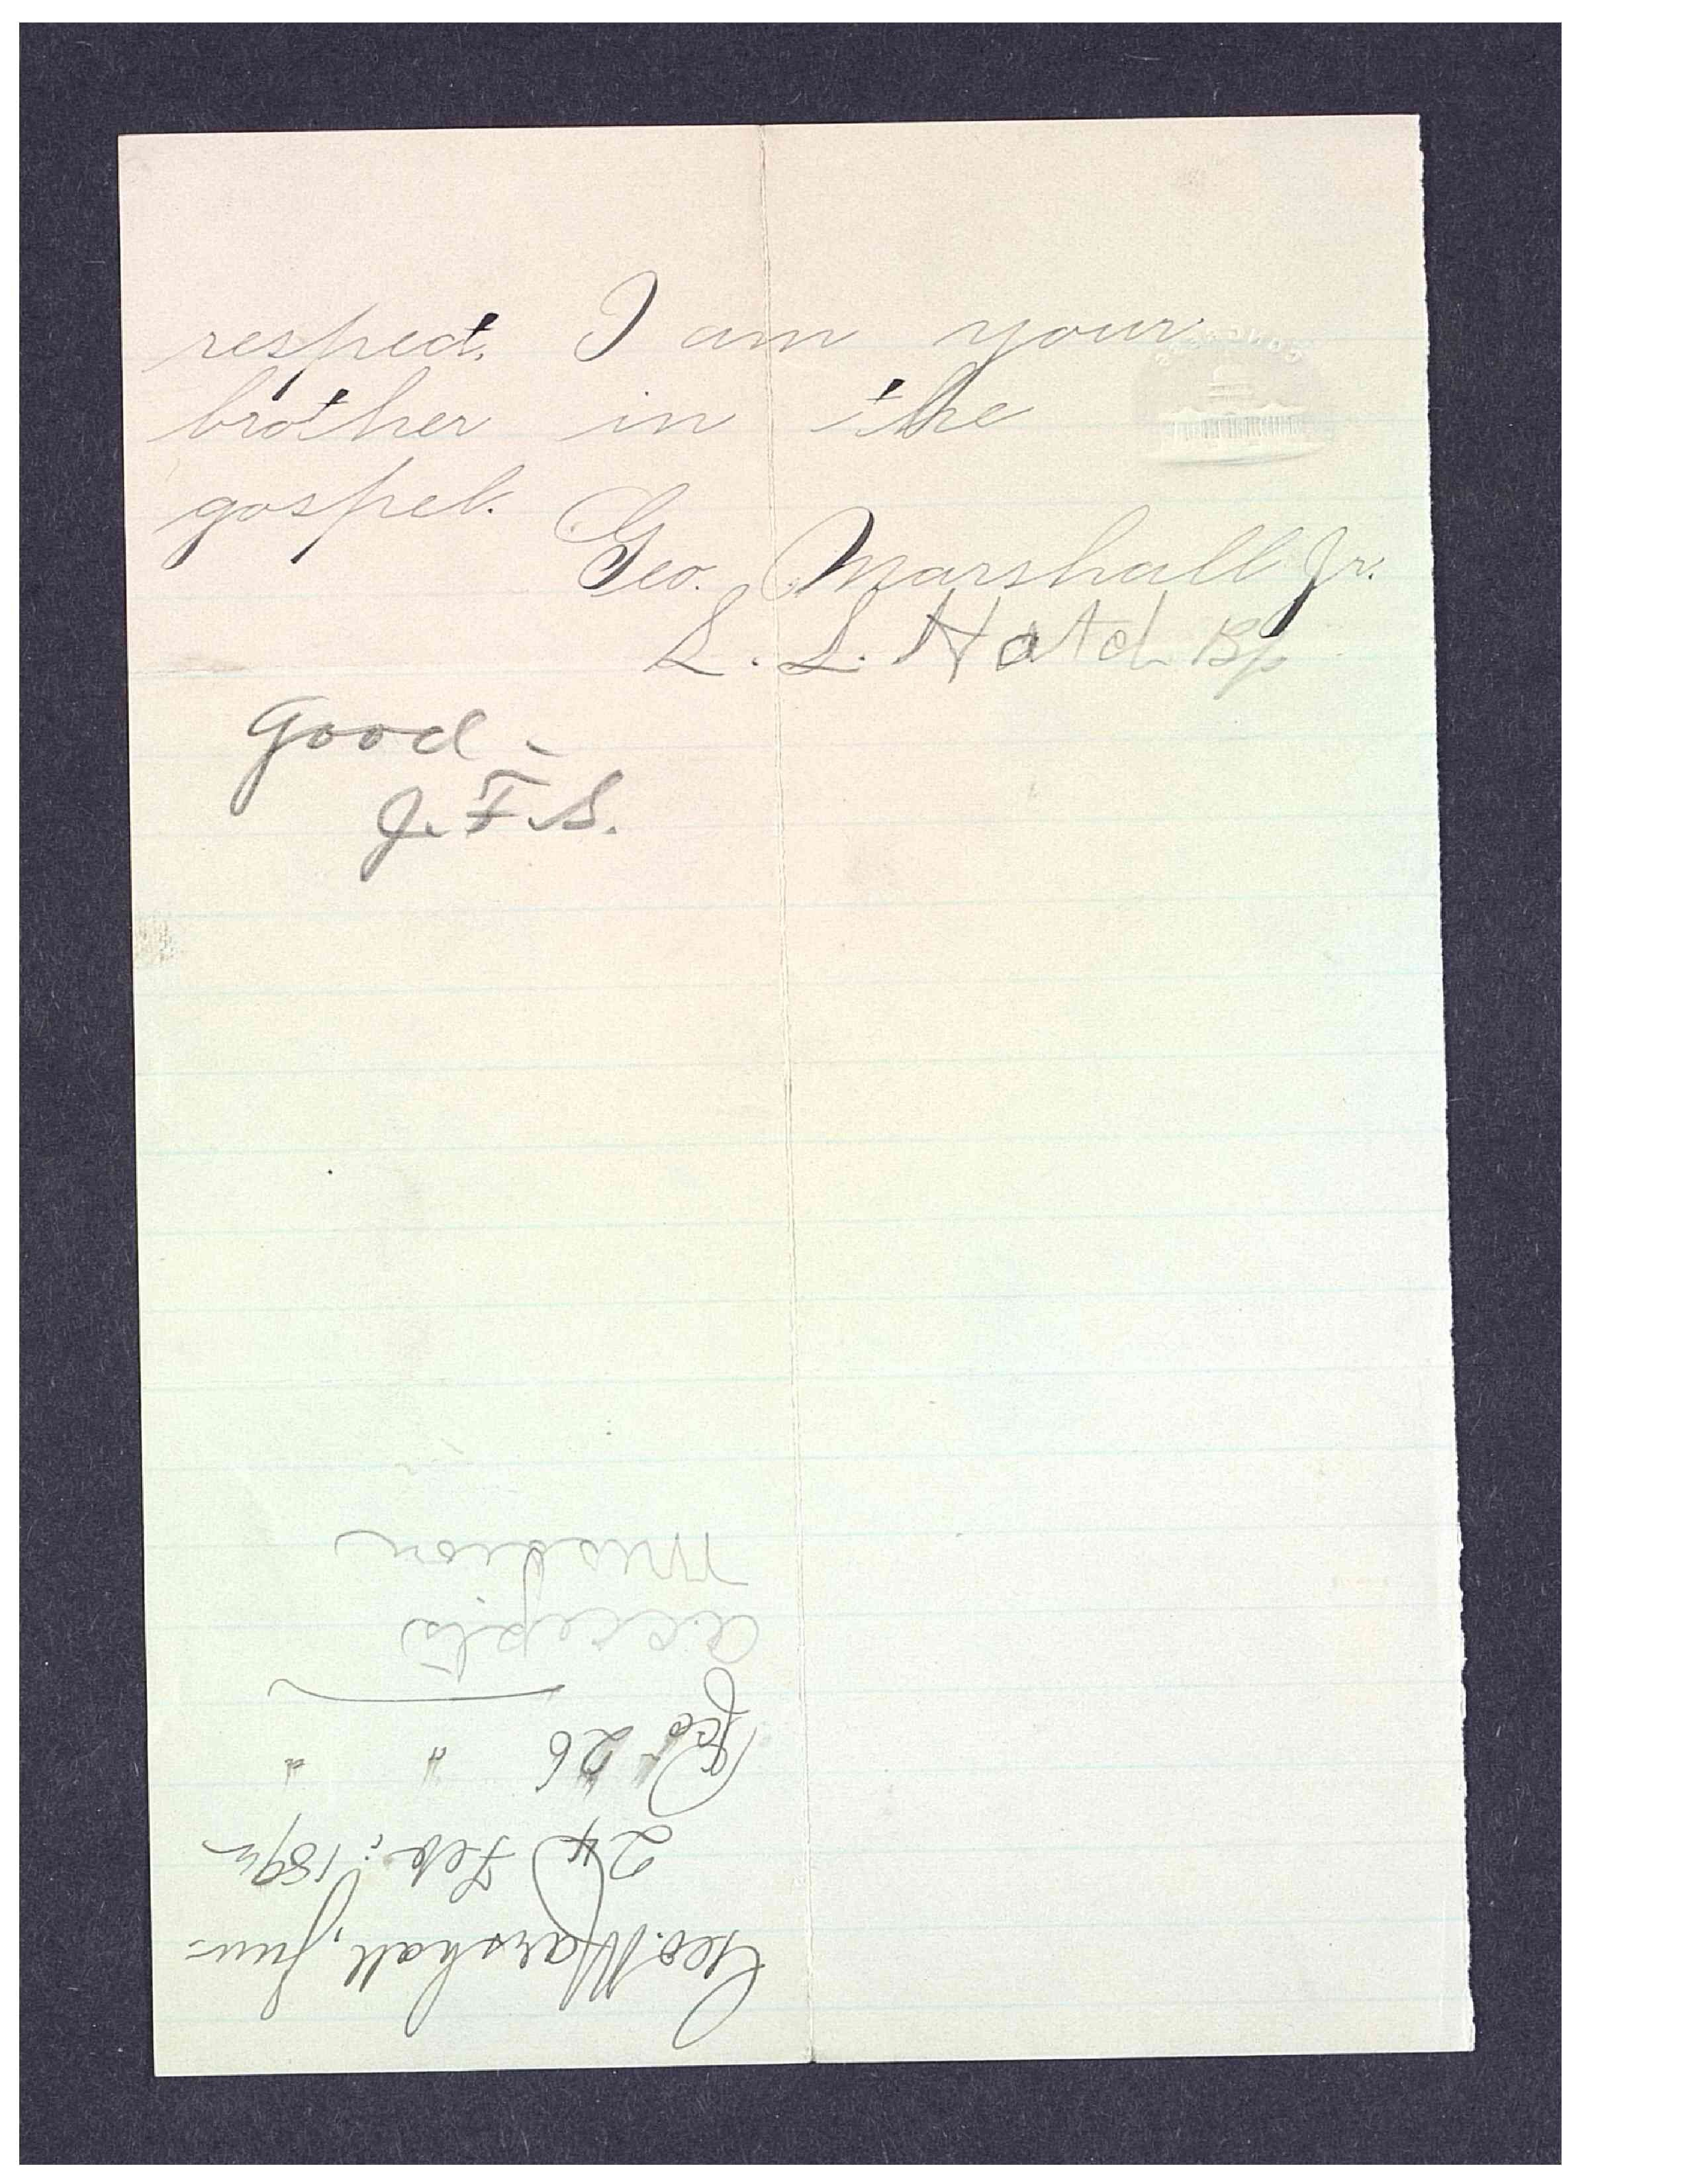 respect. I am your
brother in the
gospel.
Geo. Marshall Jr.
L. L. Hatch Bp
Good -
J. F. S.
CONGRESS
Geo. Marshall, Jun.
24 Feb.: 1892
Rcd 26 " "
Accepts
Mission